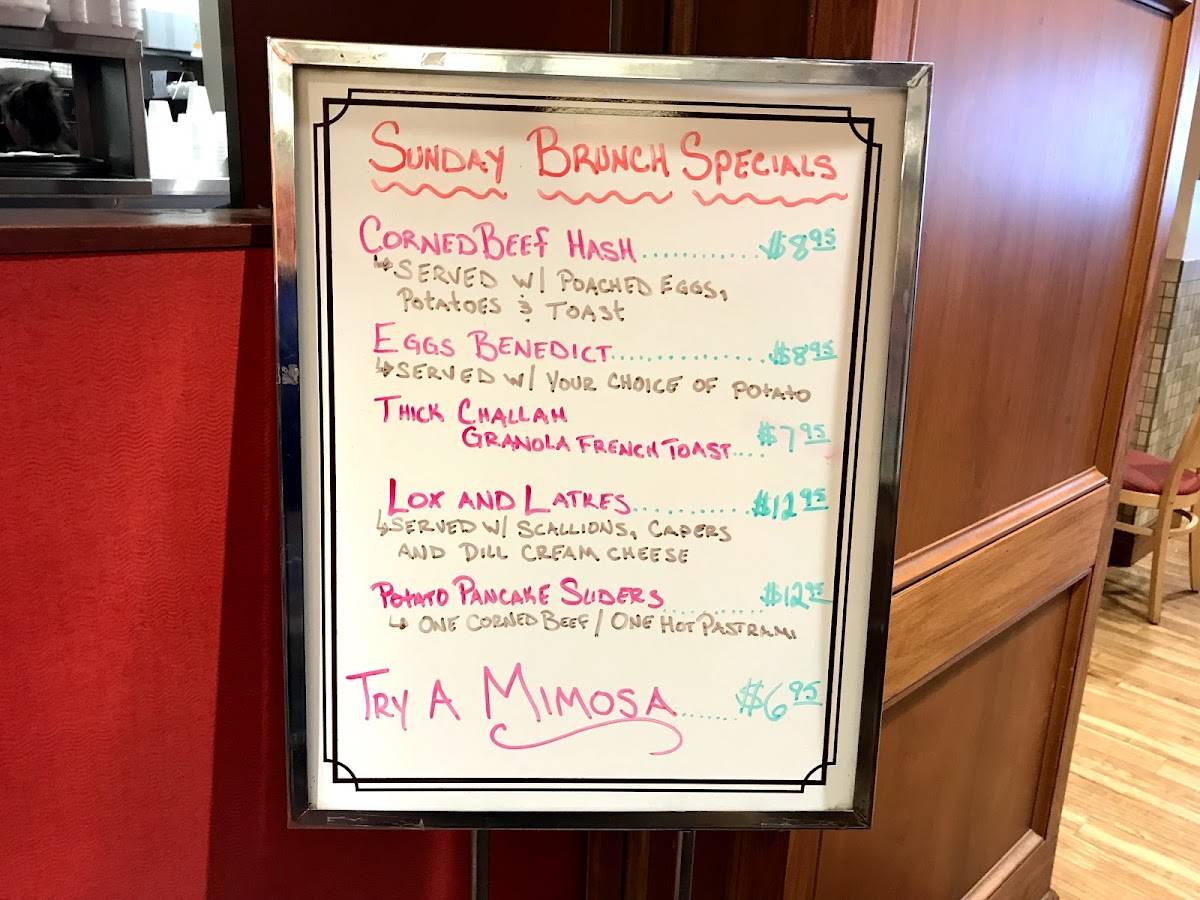 SUNDAY BRUNCH SPECIALS
CORNED BEEF HASH............$8.95
↳SERVED W/ POACHED EGGS,
POTATOES & TOAST
EGGS BENEDICT..............$8.95
↳SERVED W/ YOUR CHOICE OF POTATO
THICK CHALLAH
GRANOLA FRENCH TOAST....$7.95
LOX AND LATKES...........$12.95
↳SERVED W/ SCALLIONS, CAPERS
AND DILL CREAM CHEESE
POTATO PANCAKE SLIDERS........$12.95
↳ ONE CORNED BEEF / ONE HOT PASTRAMI
TRY A MIMOSA.......$6.95